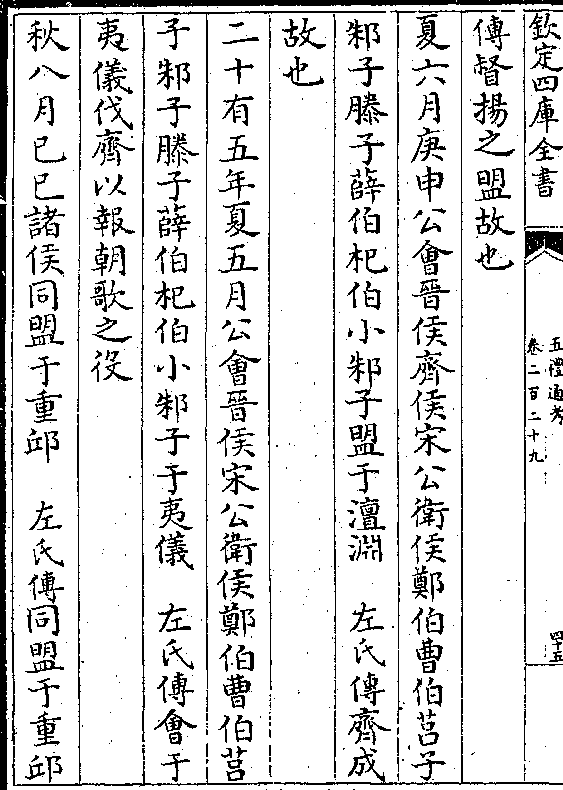 欽定四庫全書
五禮通考
卷二百二十九
四十五
傳督揚之盟故也
夏六月庚申公會晉侯齊侯宋公衛侯鄭伯曹伯莒子
邾子滕子薛伯杞伯小邾子盟于澶淵　左氏傳齊成
故也
二十有五年夏五月公會晉侯宋公衛侯鄭伯曹伯莒
子邾子滕子薛伯杞伯小邾子于夷儀　左氏傳會于
夷儀伐齊以報朝歌之役
秋八月己巳諸侯同盟于重邱　左氏傳同盟于重邱